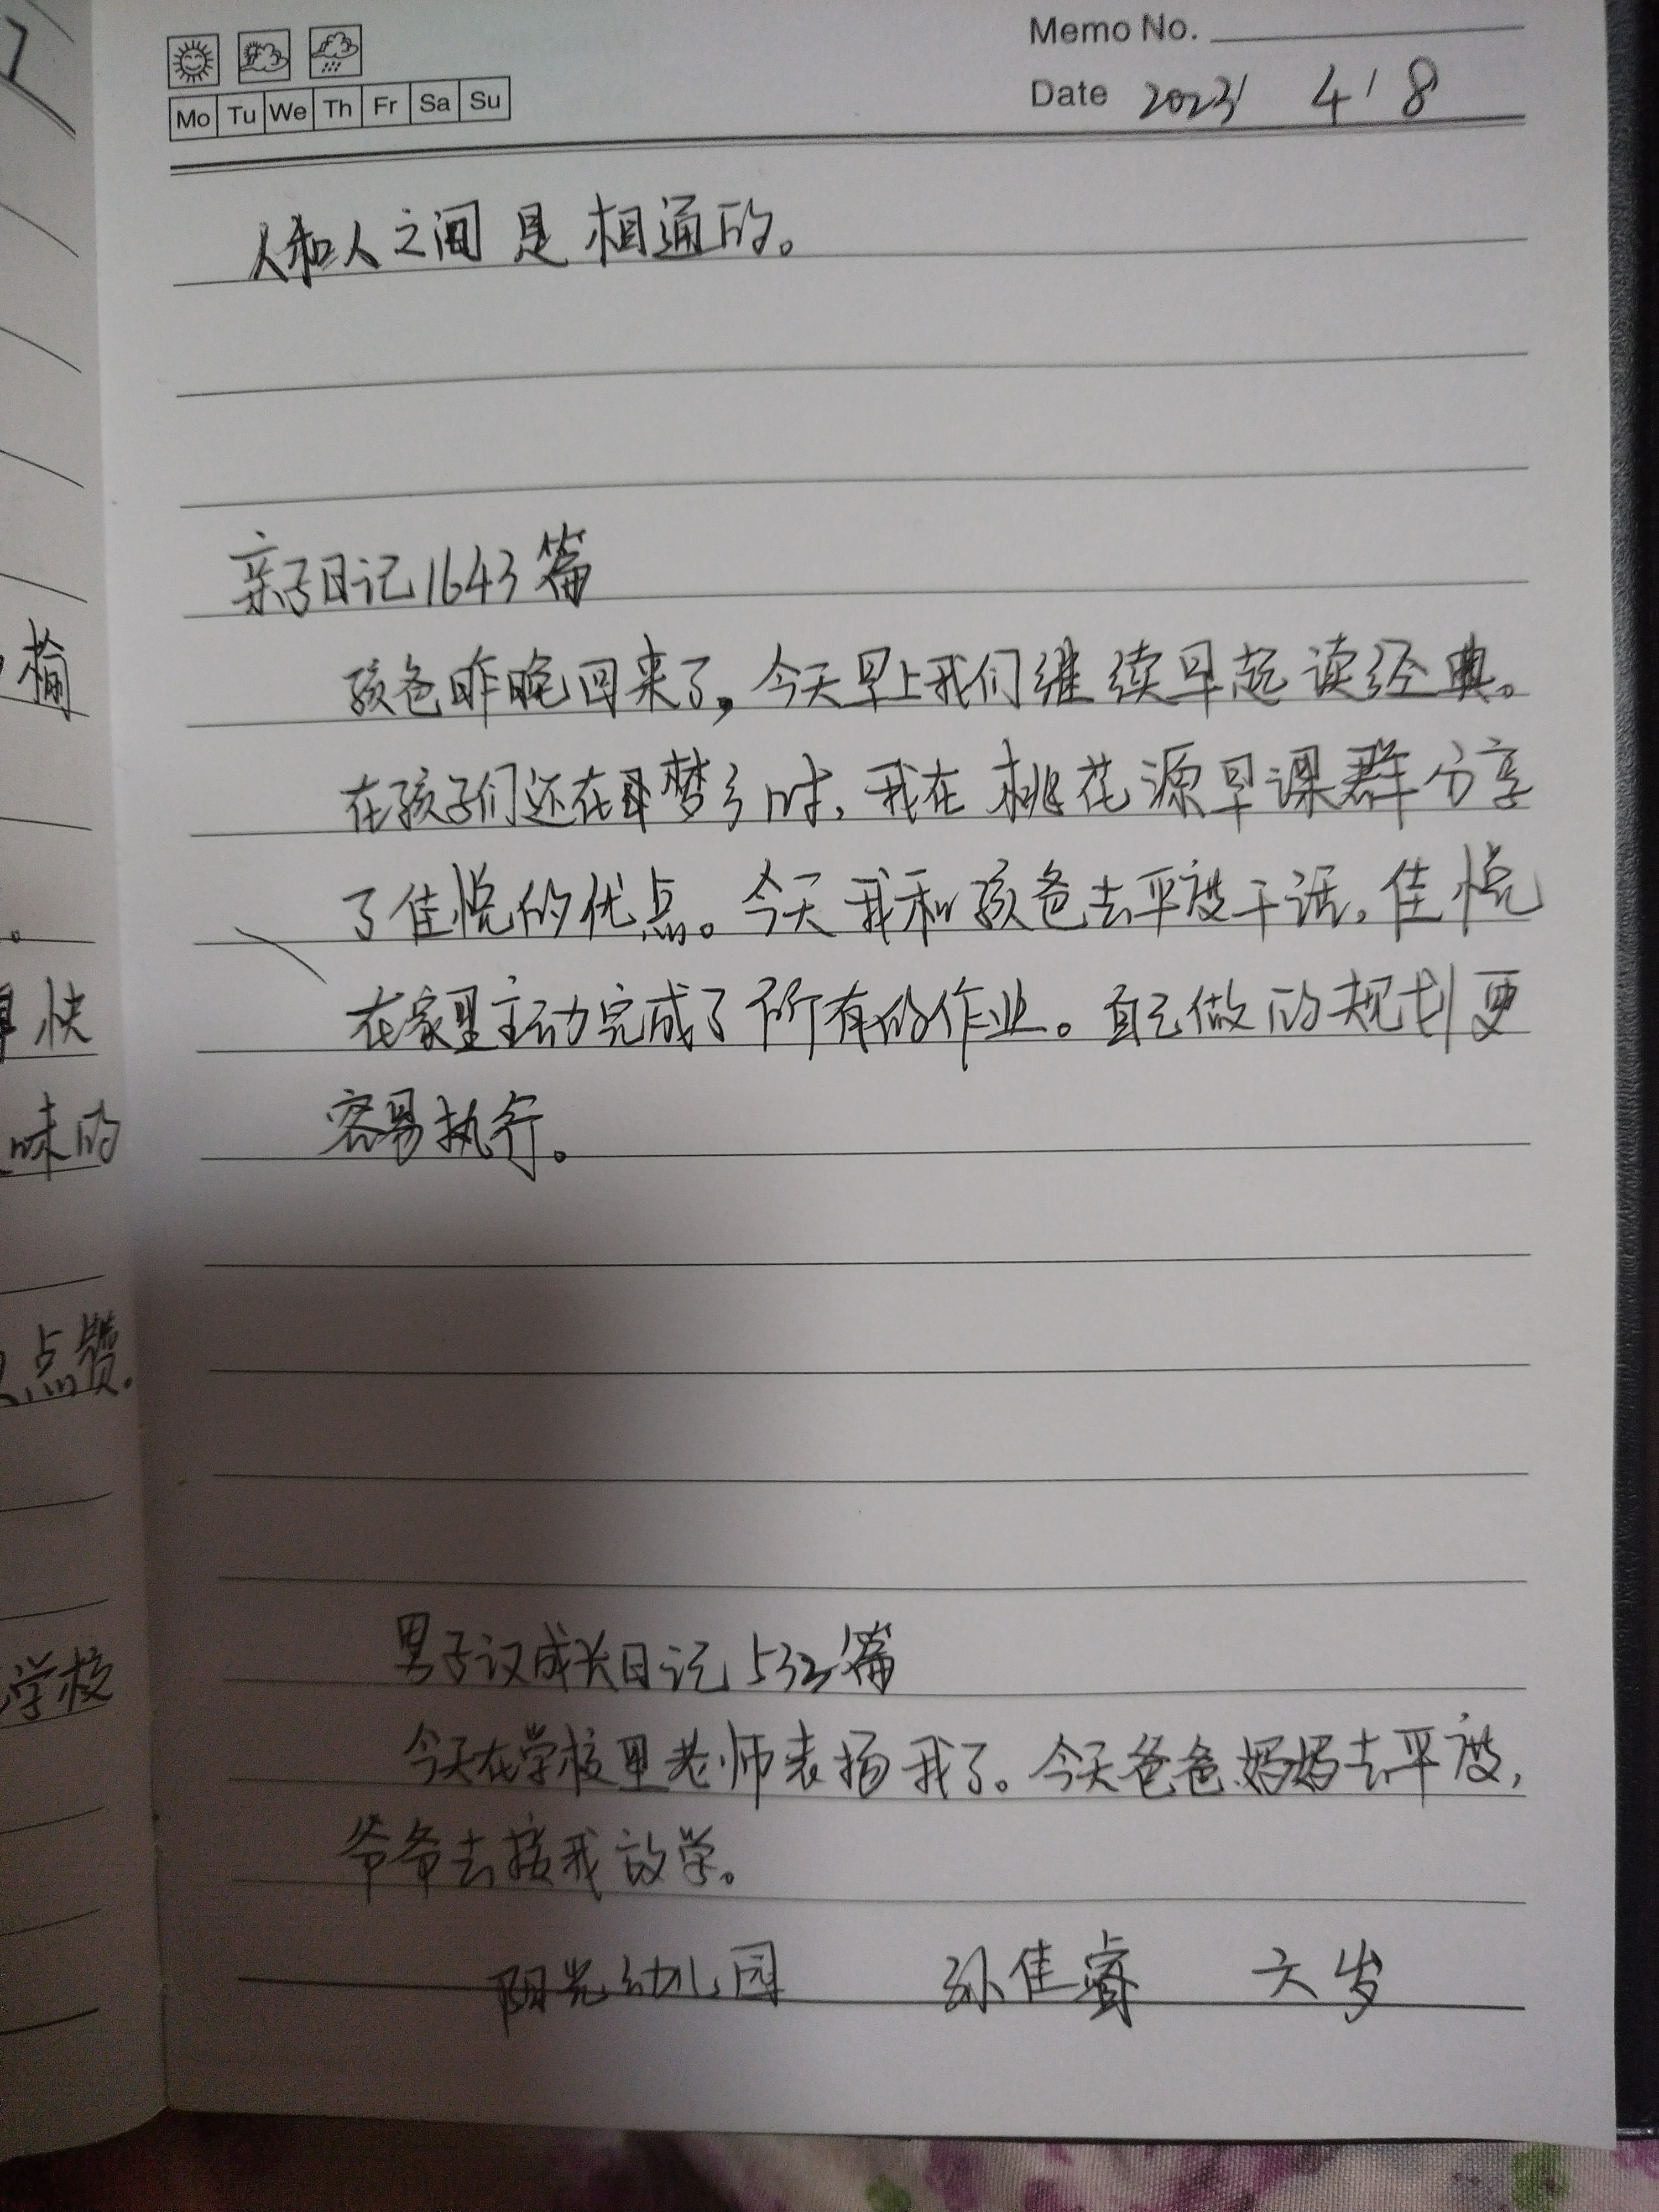 Memo No.
Mo Tu We Th Fr Sa Su
Date 2023/ 4/ 8
人和人之间是相通的。
亲子日记1643篇
孩爸昨晚回来了,今天早上我们继续早起读经典。
在孩子们还在梦乡时,我在桃花源早课群分享
了佳悦的优点。今天我和孩爸去平度干活,佳悦
在家里主动完成了所有的作业。自己做的规划更
容易执行。
男子汉成长日记532篇
今天在学校里老师表扬我了。今天爸爸妈妈去平度,
爷爷去接我放学。
阳光幼儿园 孙佳睿 六岁
榆
快
味的
点赞.
学校